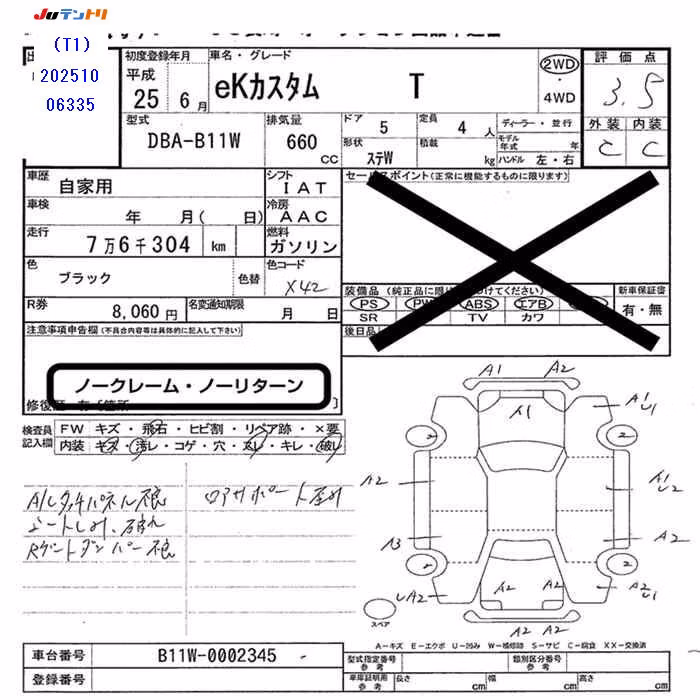 JUテントリ
(T1)
202510
06335
初度登録年月
平成
25 6月
車名・グレード
eKカスタム T
2WD
・
4WD
評価点
3.5
外装 内装
C C
型式
DBA-B11W
排気量
660
CC
ドア
5
定員
4 人
形状
ステW
積載
kg
ディーラー・並行
モデル年式 年
ハンドル 左・右
車歴
自家用
シフト
IAT
車検
年 月( 日)
冷房
AAC
走行
7万6千304 km
燃料
ガソリン
色
ブラック
色替
色コード
X42
R券
8,060円
名変通知期限
月 日
セールスポイント(正常に機能するものに限ります)
装備品(純正品に限り
けてください)
PS PW ABS エアB
SR TV カワ
新車保証書
有・無
後日品
注意事項申告欄(不具合内容等は具体的に記入して下さい)
ノークレーム・ノーリターン
修復歴
検査員記入欄
FW キズ・飛石・ヒビ割・リペア跡・×要
内装 キズ・汚レ・コゲ・穴・スレ・キレ・破レ
A/Cタッチパネル不良
シートしみ、破れ
Rゲートダンパー不良
コアサポート歪み
A1 A2
A1
A1
U1
2 2
A2
A2
A1
U2
A3
A2
2 2
UA2
A2 A2
A2
U1
A2 A2
スペア
A-キズ E-エクボ U-凹み W-補修跡 S-サビ C-腐食 XX-交換済
車台番号
B11W-0002345
登録番号
型式指定番号
参考
類別区分番号
参考
車庫証明用
参考
長さ cm 幅 cm 高さ cm